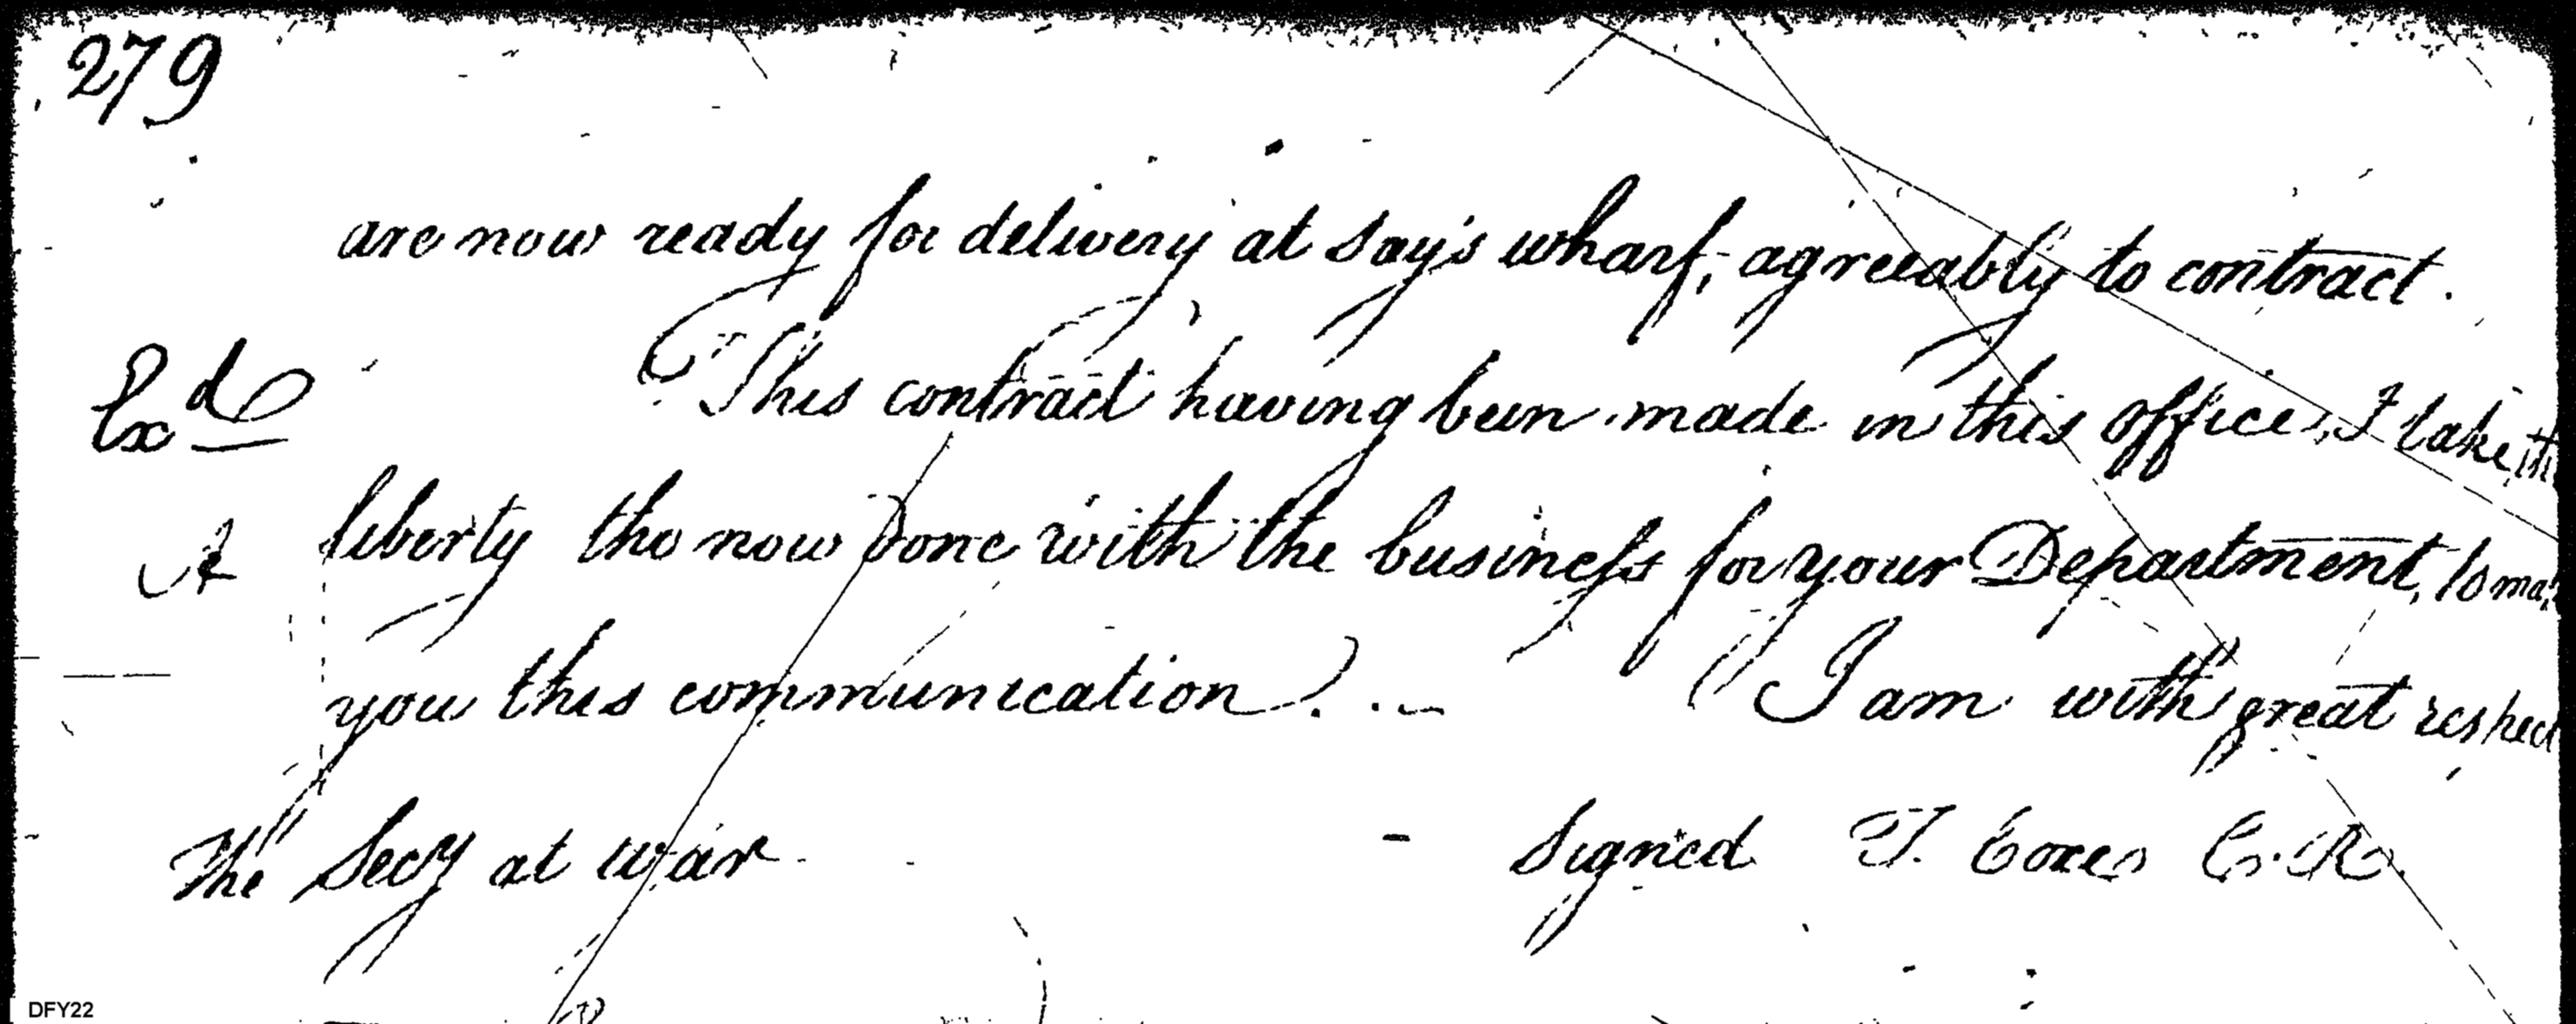 279
are now ready for delivery at Say's wharf, agreeably to contract.
Exd
This contract having been made in this office, I take th
liberty tho now done with the business for your Department, to ma
you this communication. . .
I am with great respect
The Secy at war - Signed T. Coxe C. R.
DFY22